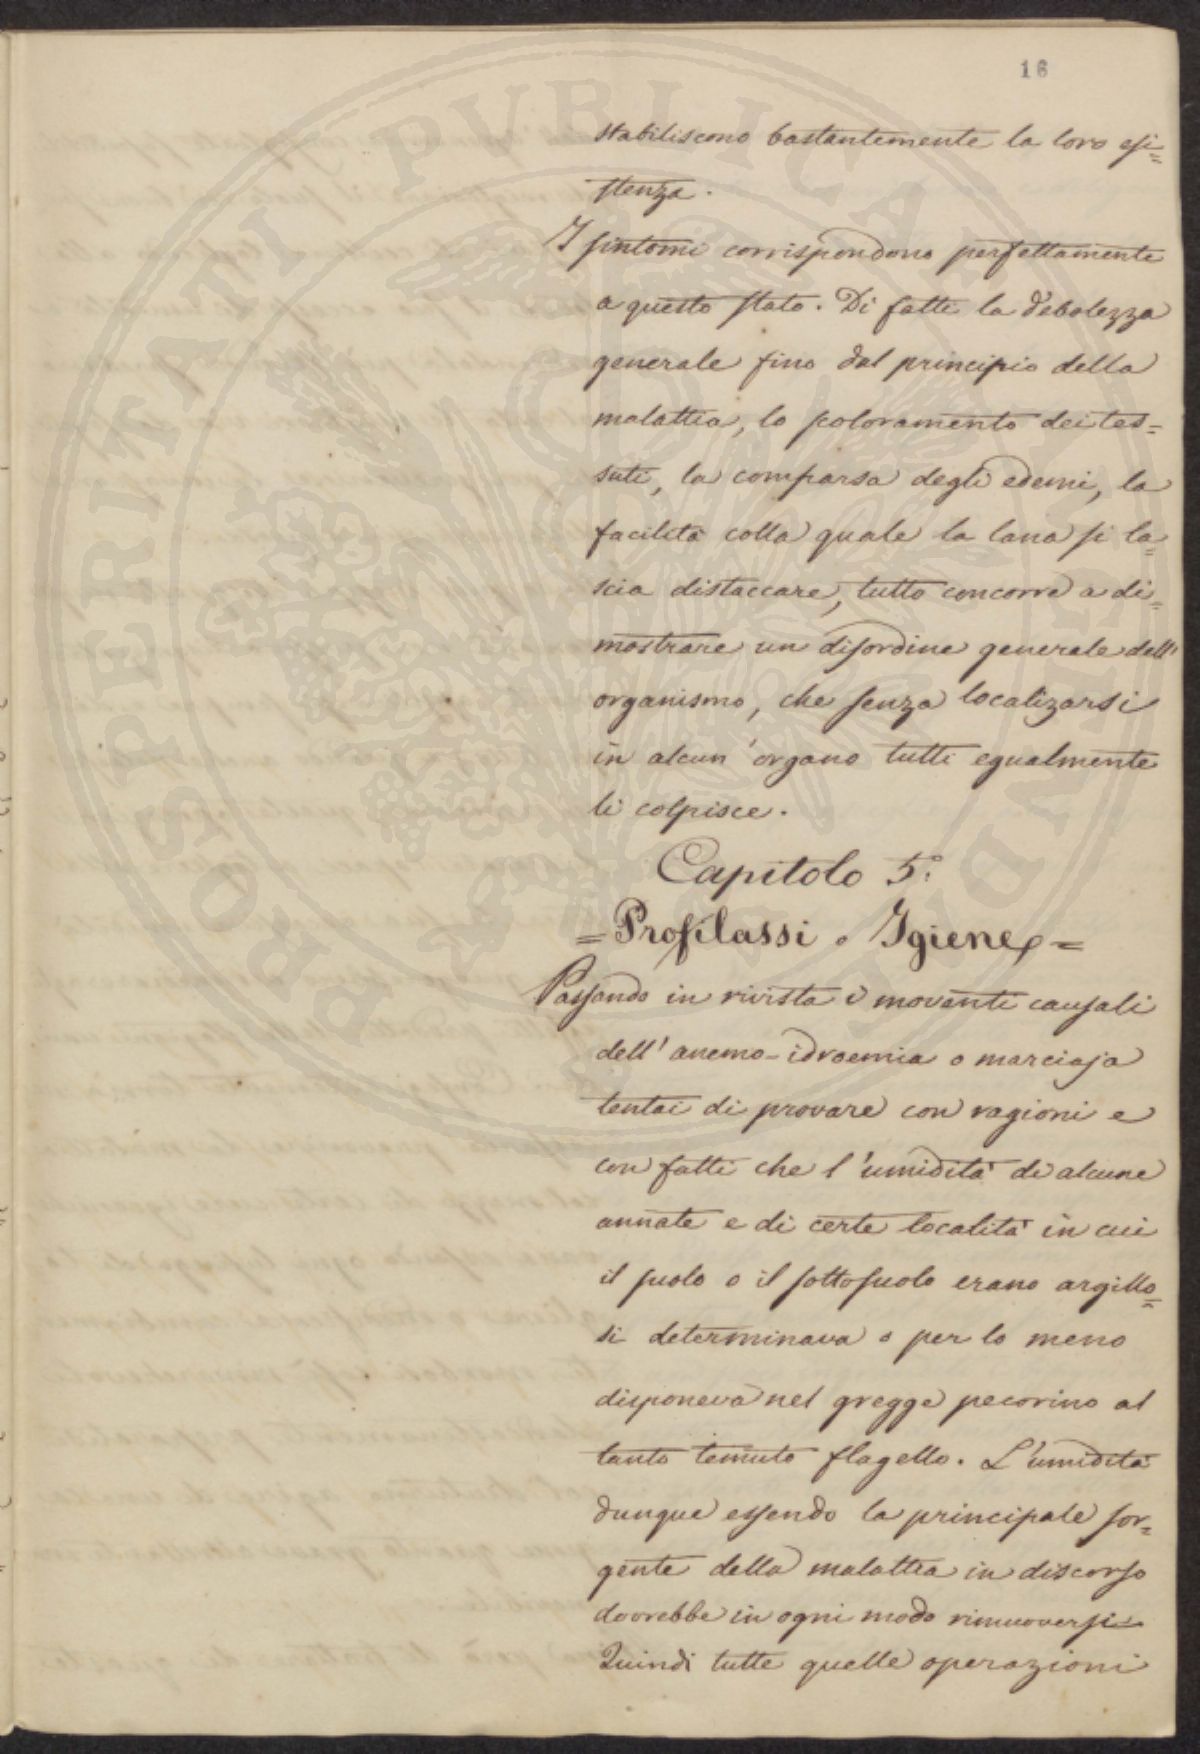 16
PROSPERITATI PVBLICAE
stabiliscono bastantemente la loro esi=
stenza.
I sintomi corrispondono perfettamente
a questo stato. Di fatti la debolezza
generale fino dal principio della
malattia, lo scoloramento dei tes=
suti, la comparsa degli edemi, la
facilità colla quale la lana si la=
scia distaccare, tutto concorre a di=
mostrare un disordine generale dell'
organismo, che senza localizarsi
in alcun'organo tutti egualmente
li colpisce.
Capitolo 5°.
=Profilassi e Igiene=
Passando in rivista i moventi causali
dell'anemo-idroemia o marciaja
tentai di provare con ragioni e
con fatti che l'umidità di alcune
annate e di certe località in cui
il suolo o il sottosuolo erano argillo=
si determinava o per lo meno
disponeva nel gregge pecorino al
tanto temuto flagello. L'umidità
dunque essendo la principale sor=
gente della malattia in discorso
dovrebbe in ogni modo rimuoversi
Quindi tutte quelle operazioni